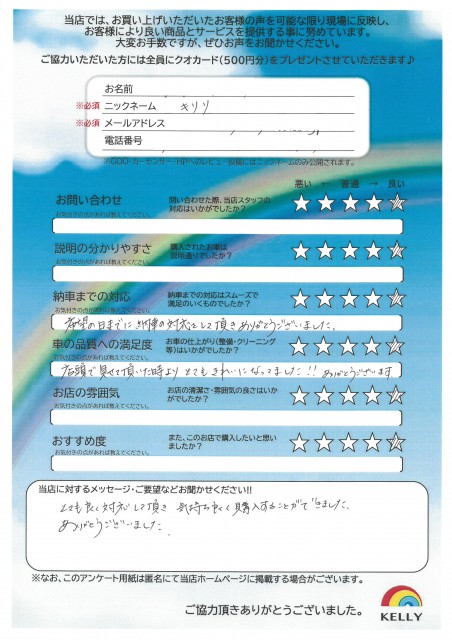 当店では、お買い上げいただいたお客様の声を可能な限り現場に反映し、
お客様により良い商品とサービスを提供する事に努めています。
大変お手数ですが、ぜひお声をお聞かせください。
ご協力いただいた方には全員にクオカード(500円分)をプレゼントさせていただきます♪
お名前
※必須 ニックネーム キリソ
※必須 メールアドレス
電話番号
悪い ← 普通 → 良い
お問い合わせ 問い合わせた際、当店スタッフの
お気付きの点があれば教えてください。 対応はいかがでしたか?
説明の分かりやすさ 購入されたお車は
お気付きの点があれば教えてください。 説明通りでしたか?
納車までの対応 納車までの対応はスムーズで
お気付きの点があれば教えてください。 満足のいくものでしたか?
希望の日までに納車の対応をして頂きありがとうございました。
車の品質への満足度 お車の仕上がり(整備・クリーニング
お気付きの点があれば教えてください。 等)はいかがでしたか?
店頭で見せて頂いた時よりとてもきれいになってました!!ありがとうございます
お店の雰囲気 お店の清潔さ・雰囲気の良さはいか
お気付きの点があれば教えてください。 がでしたか?
おすすめ度 また、このお店で購入したいと思い
お気付きの点があれば教えてください。 ましたか?
当店に対するメッセージ・ご要望などお聞かせください!!
とても良く対応して頂き 気持ち良く購入することができました。
ありがとうございました。
※なお、このアンケート用紙は匿名にて当店ホームページに掲載する場合がございます。
ご協力頂きありがとうございました。
KELLY